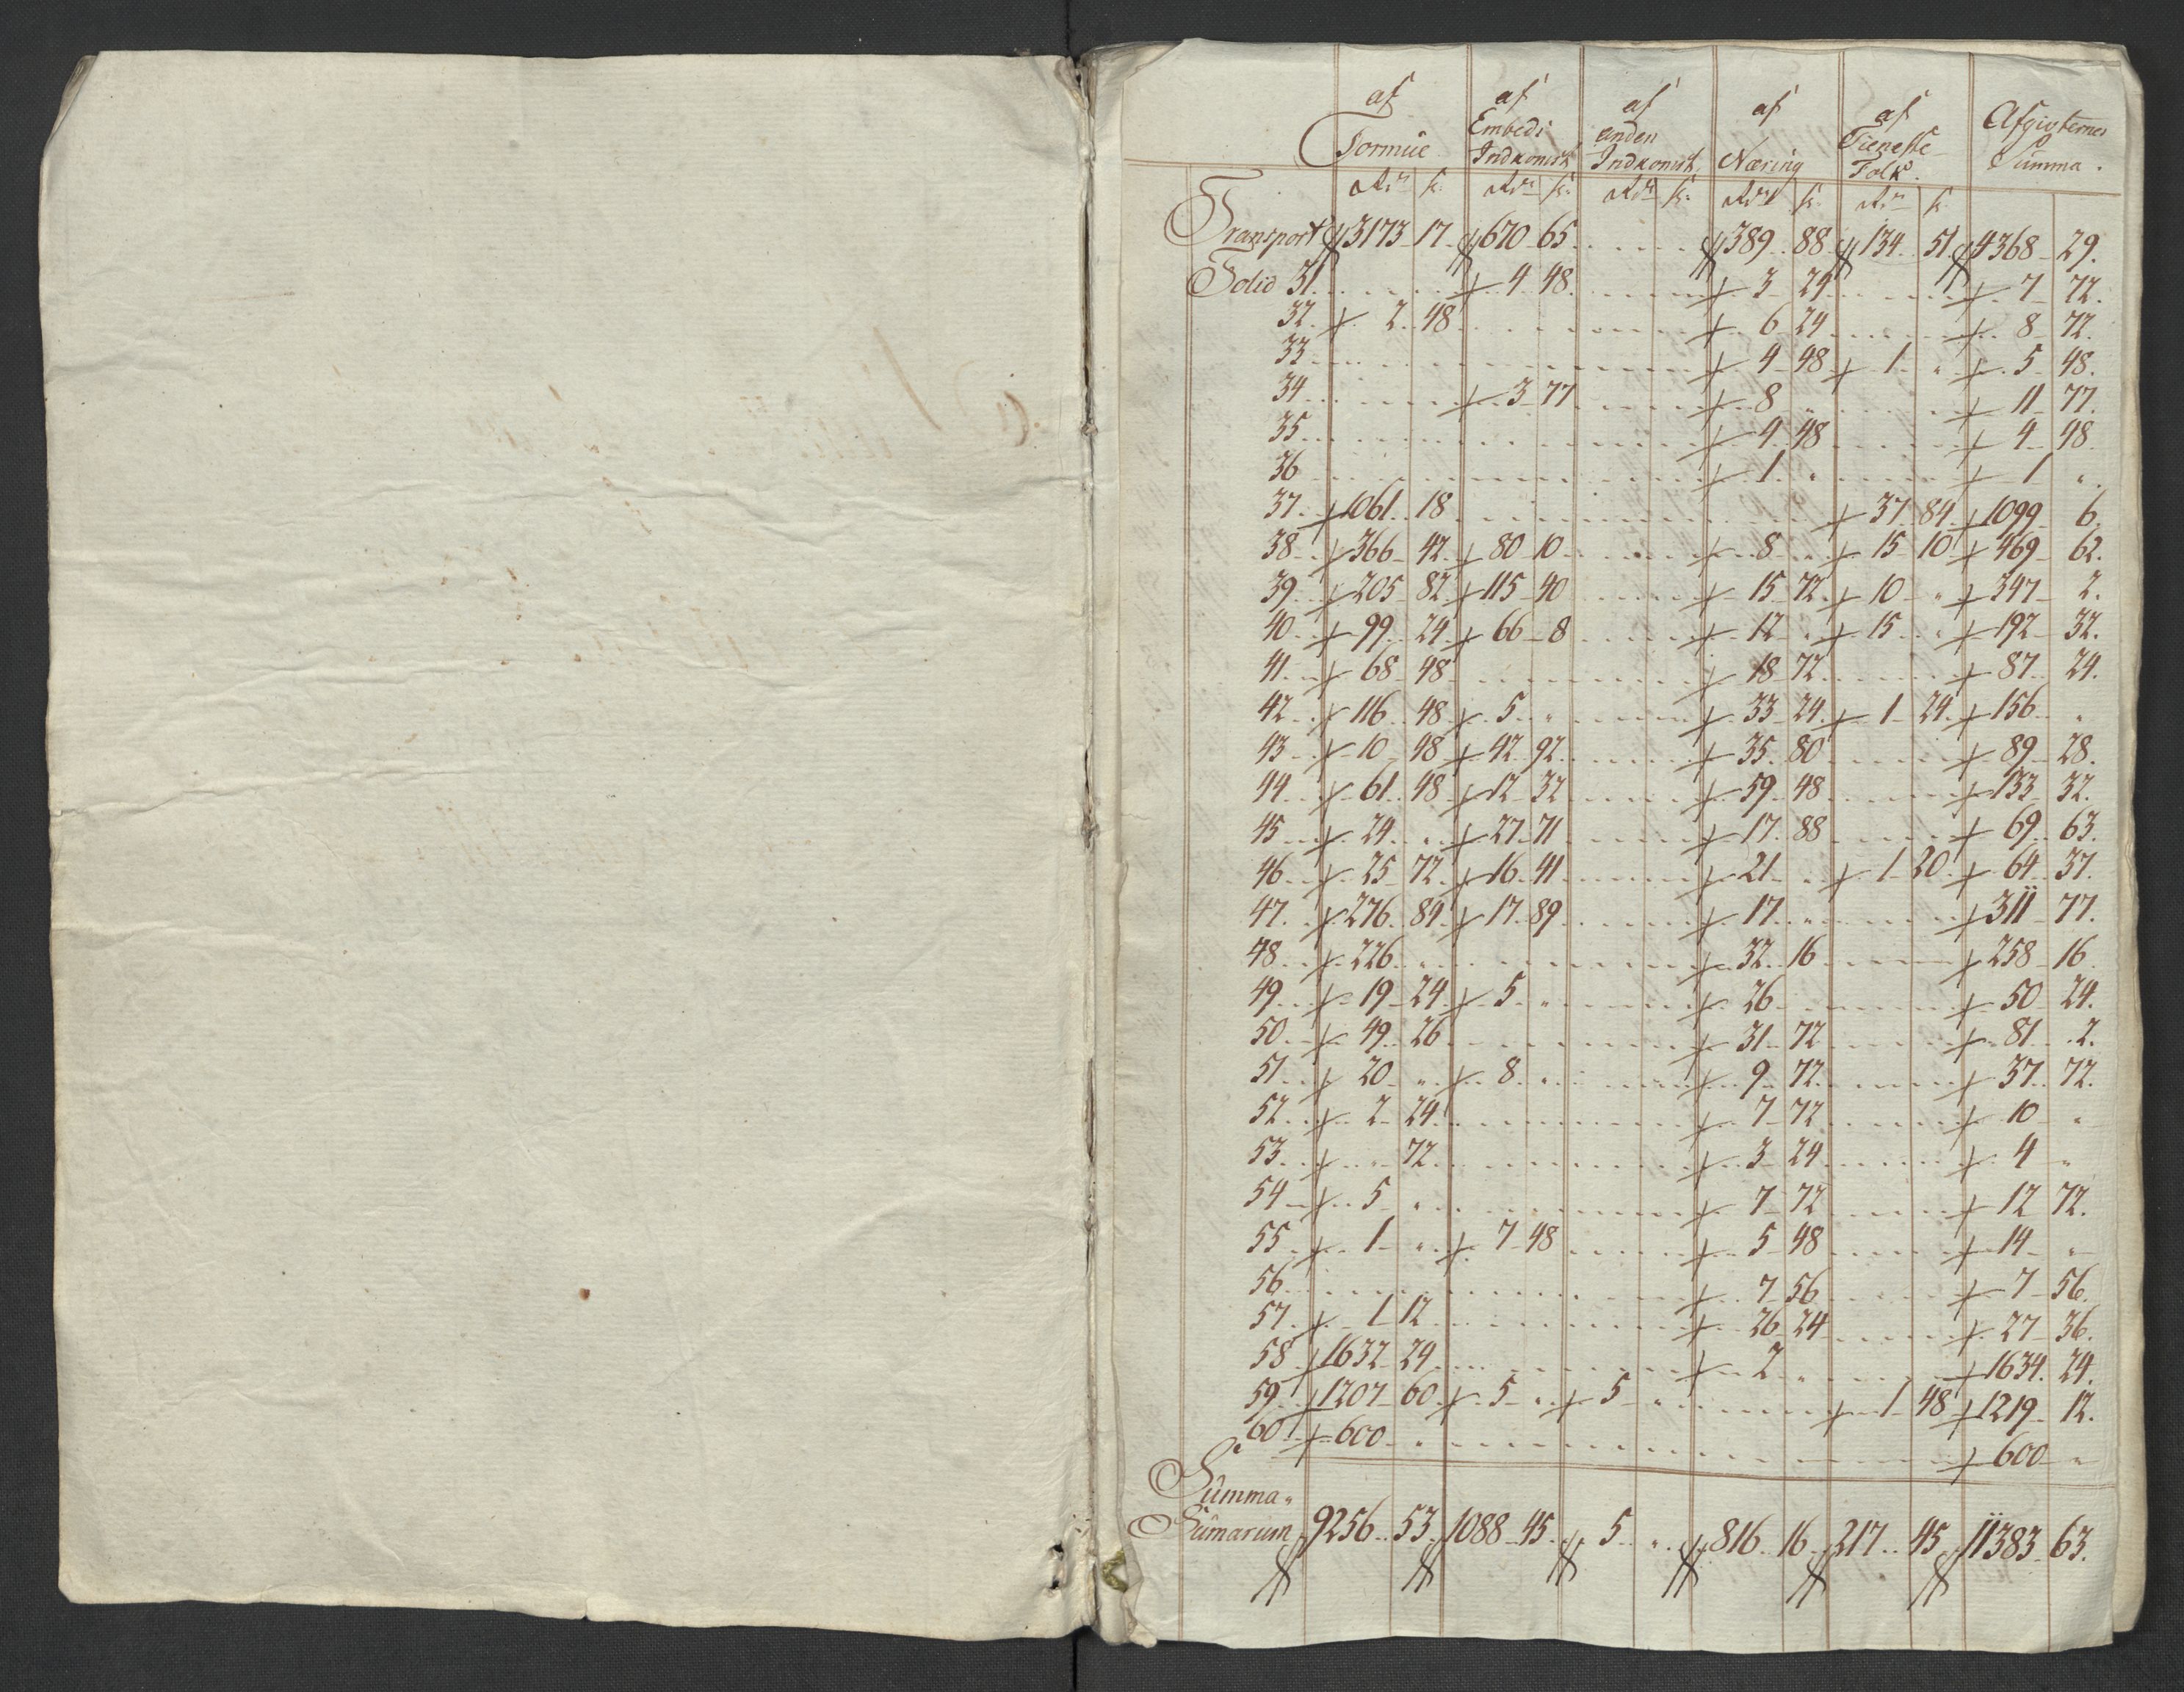 af Formue | af Embeds Indkomst | af anden Indkomst | af Næring | af Tieneste Folk. | Afgivternes Summa.
Rdr | s. | Rdr | s. | Rdr | s. | Rdr | s. | Rdr | s.
Transport 3173 17 | 670 65 | | 389 88 | 134 51 | 4368 29.
Folio 31 | | 4 48 | | 3 24 | | 7 72.
32 | 2 48 | | | 6 24 | | 8 72.
33 | | | | 4 48 | 1 " | 5 48.
34 | | 3 77 | | 8 " | | 11 77.
35 | | | | 4 48 | | 4 48.
36 | | | | 1 " | | 1 "
37 | 1061 18 | | | | 37 84 | 1099 6.
38 | 366 42 | 80 10 | | 8 | 15 10 | 469 62.
39 | 205 82 | 115 40 | | 15 72 | 10 " | 347 2.
40 | 99 24 | 66 8 | | 12 " | 15 " | 192 32.
41 | 68 48 | | | 18 72 | | 87 24.
42 | 116 48 | 5 " | | 33 24 | 1 24 | 156 "
43 | 10 48 | 42 92 | | 35 80 | | 89 28.
44 | 61 48 | 12 32 | | 59 48 | | 133 32.
45 | 24 " | 27 71 | | 17 88 | | 69 63.
46 | 25 72 | 16 41 | | 21 " | 1 20 | 64 37.
47 | 276 84 | 17 89 | | 17 " | | 311 77.
48 | 226 " | | | 32 16 | | 258 16
49 | 19 24 | 5 " | | 26 | | 50 24.
50 | 49 26 | | | 31 72 | | 81 2.
51 | 20 " | 8 " | | 9 72 | | 37 72.
52 | 2 24 | | | 7 72 | | 10 "
53 | " 72 | | | 3 24 | | 4 "
54 | 5 " | | | 7 72 | | 12 72.
55 | 1 " | 7 48 | | 5 48 | | 14 "
56 | | | | 7 56 | | 7 56.
57 | 1 12 | | | 26 24 | | 27 36.
58 | 1632 24 | | | 2 " | | 1634 24.
59 | 1207 60 | 5 " | 5 " | | 1 48 | 1219 12.
60 | 600 " | | | | | 600 "
Summa
Sumarum 9256 53 | 1088 45 | 5 " | 816 16 | 217 45 | 11383 63.